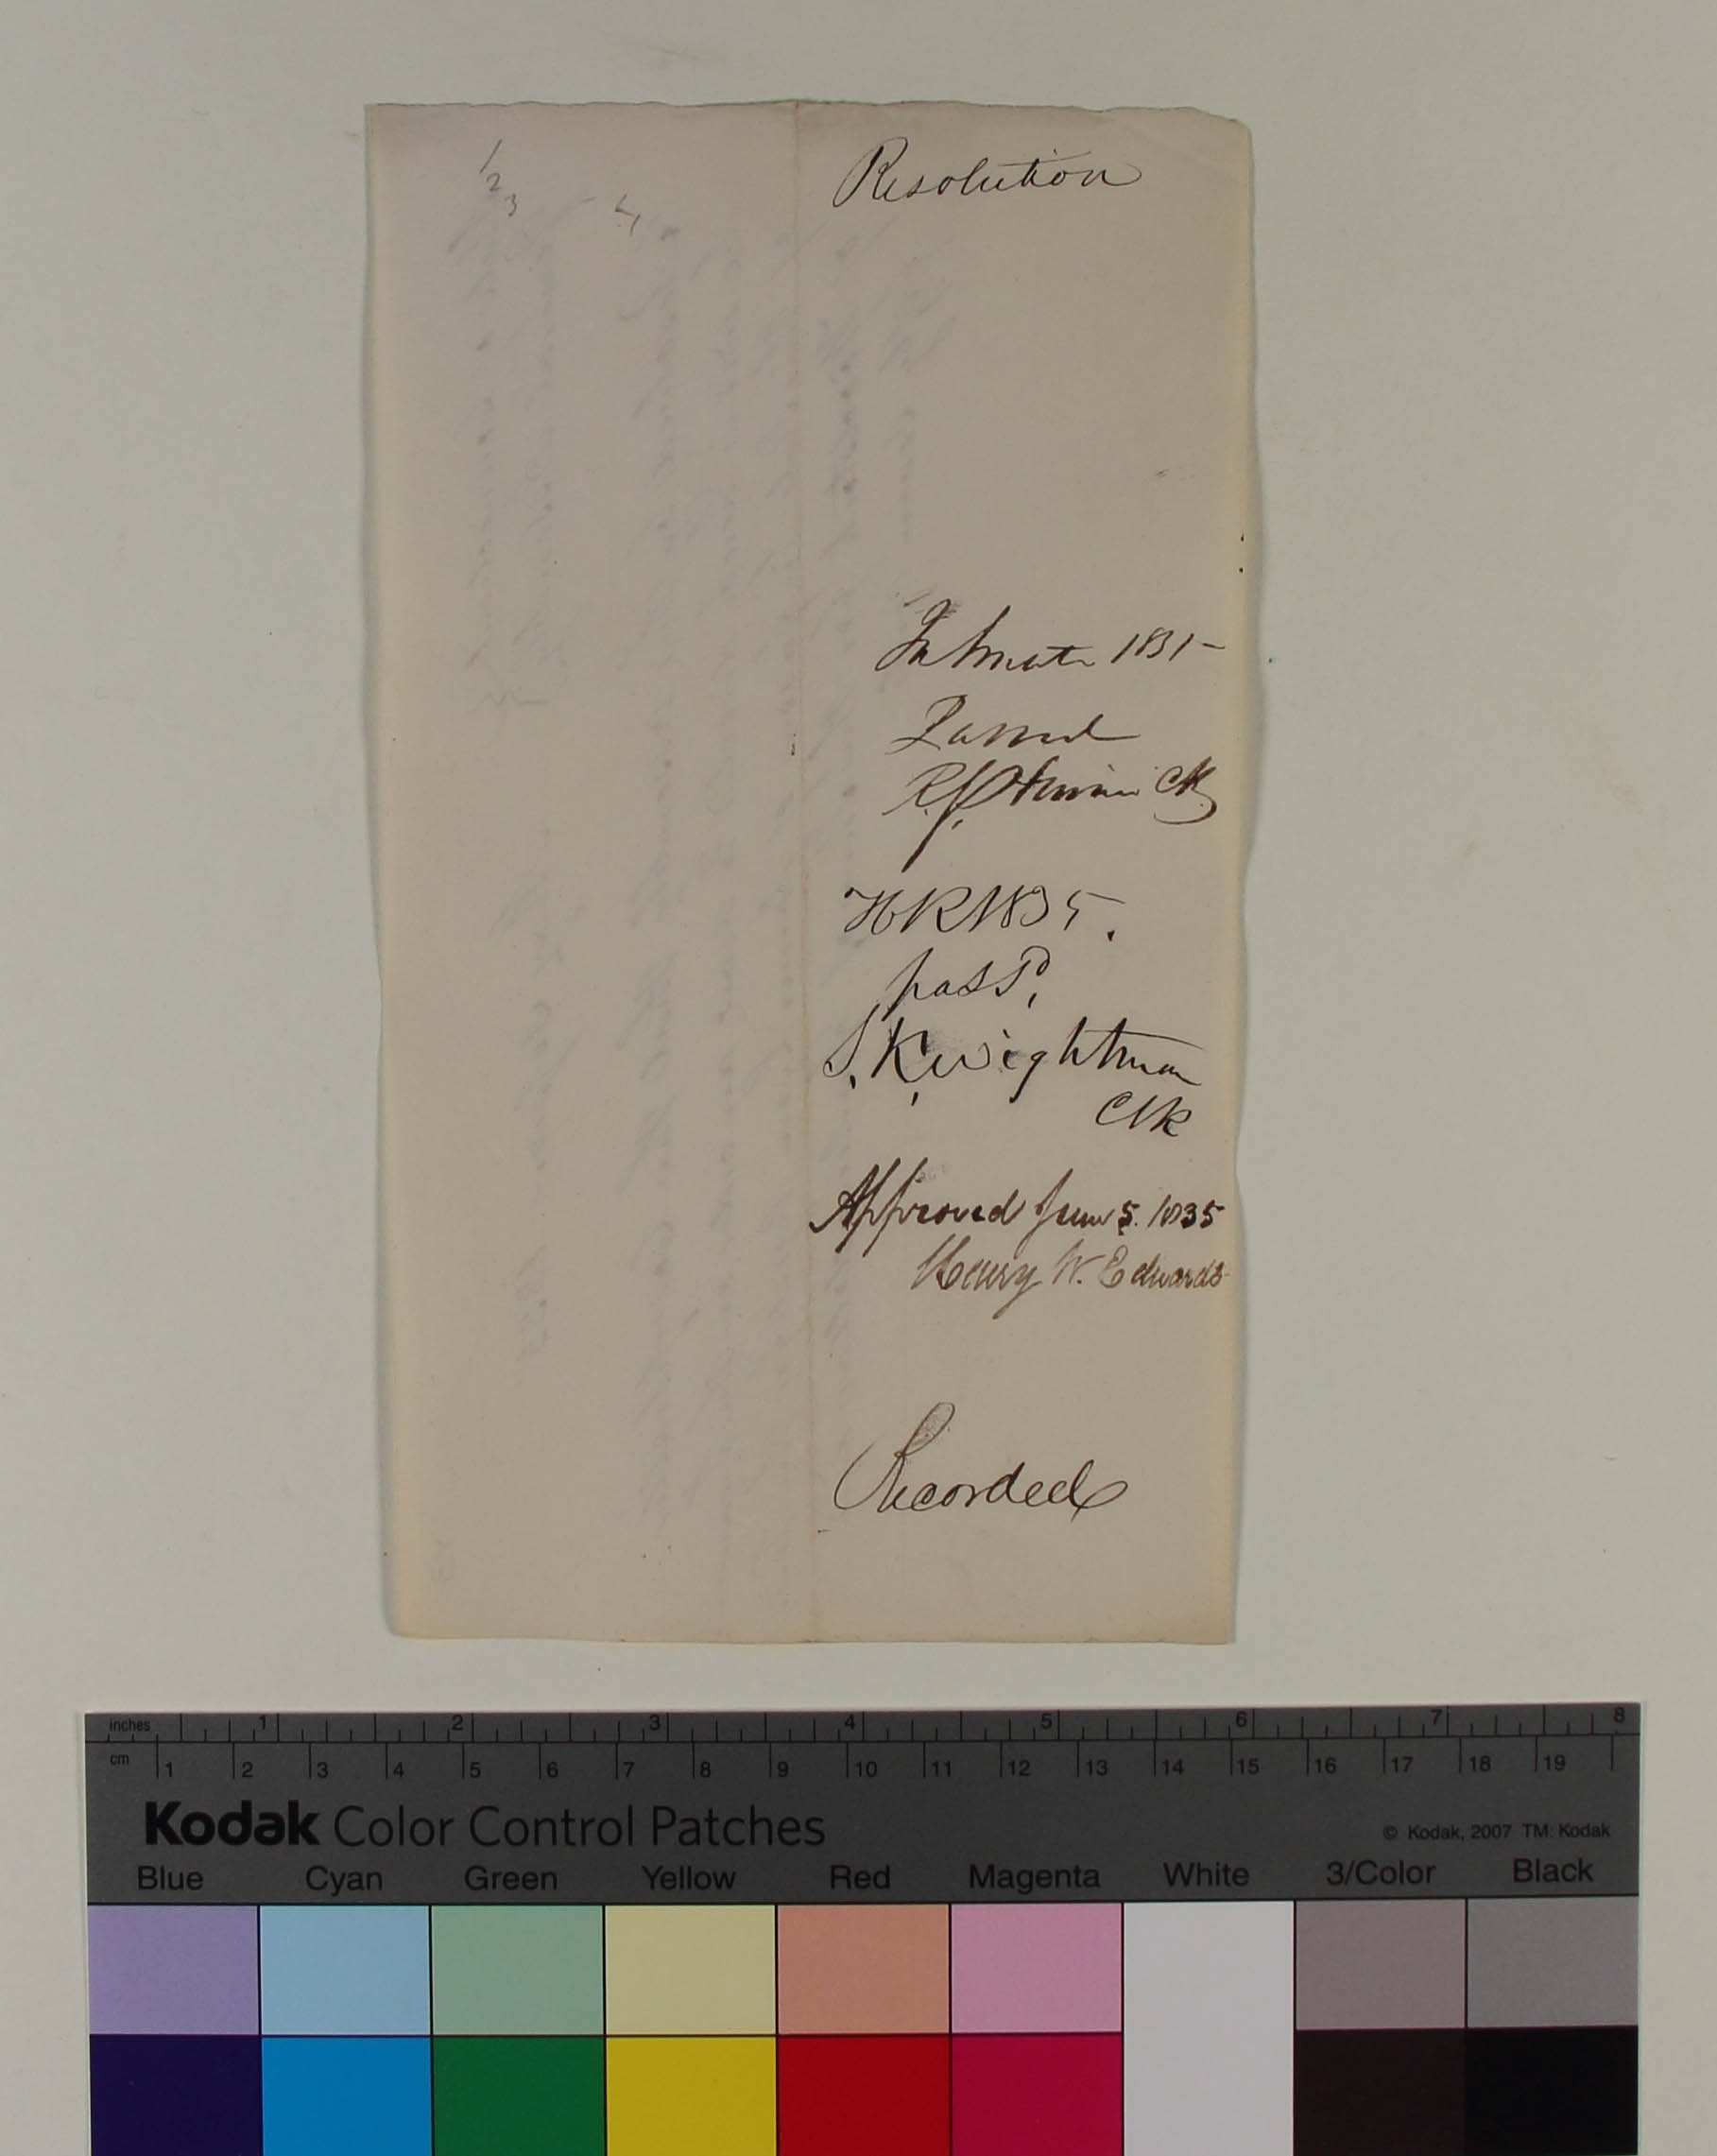 1
2
3
4
Resolution
In Senate 1835
Passed
Clk
H R 1835.
passd,
S. K. Wightman
Clk
Approved June 5. 1835
Henry W. Edwards
Recorded
inches 1 2 3 4 5 6 7 8
cm 1 2 3 4 5 6 7 8 9 10 11 12 13 14 15 16 17 18 19
Kodak Color Control Patches
© Kodak, 2007 TM: Kodak
Blue Cyan Green Yellow Red Magenta White 3/Color Black